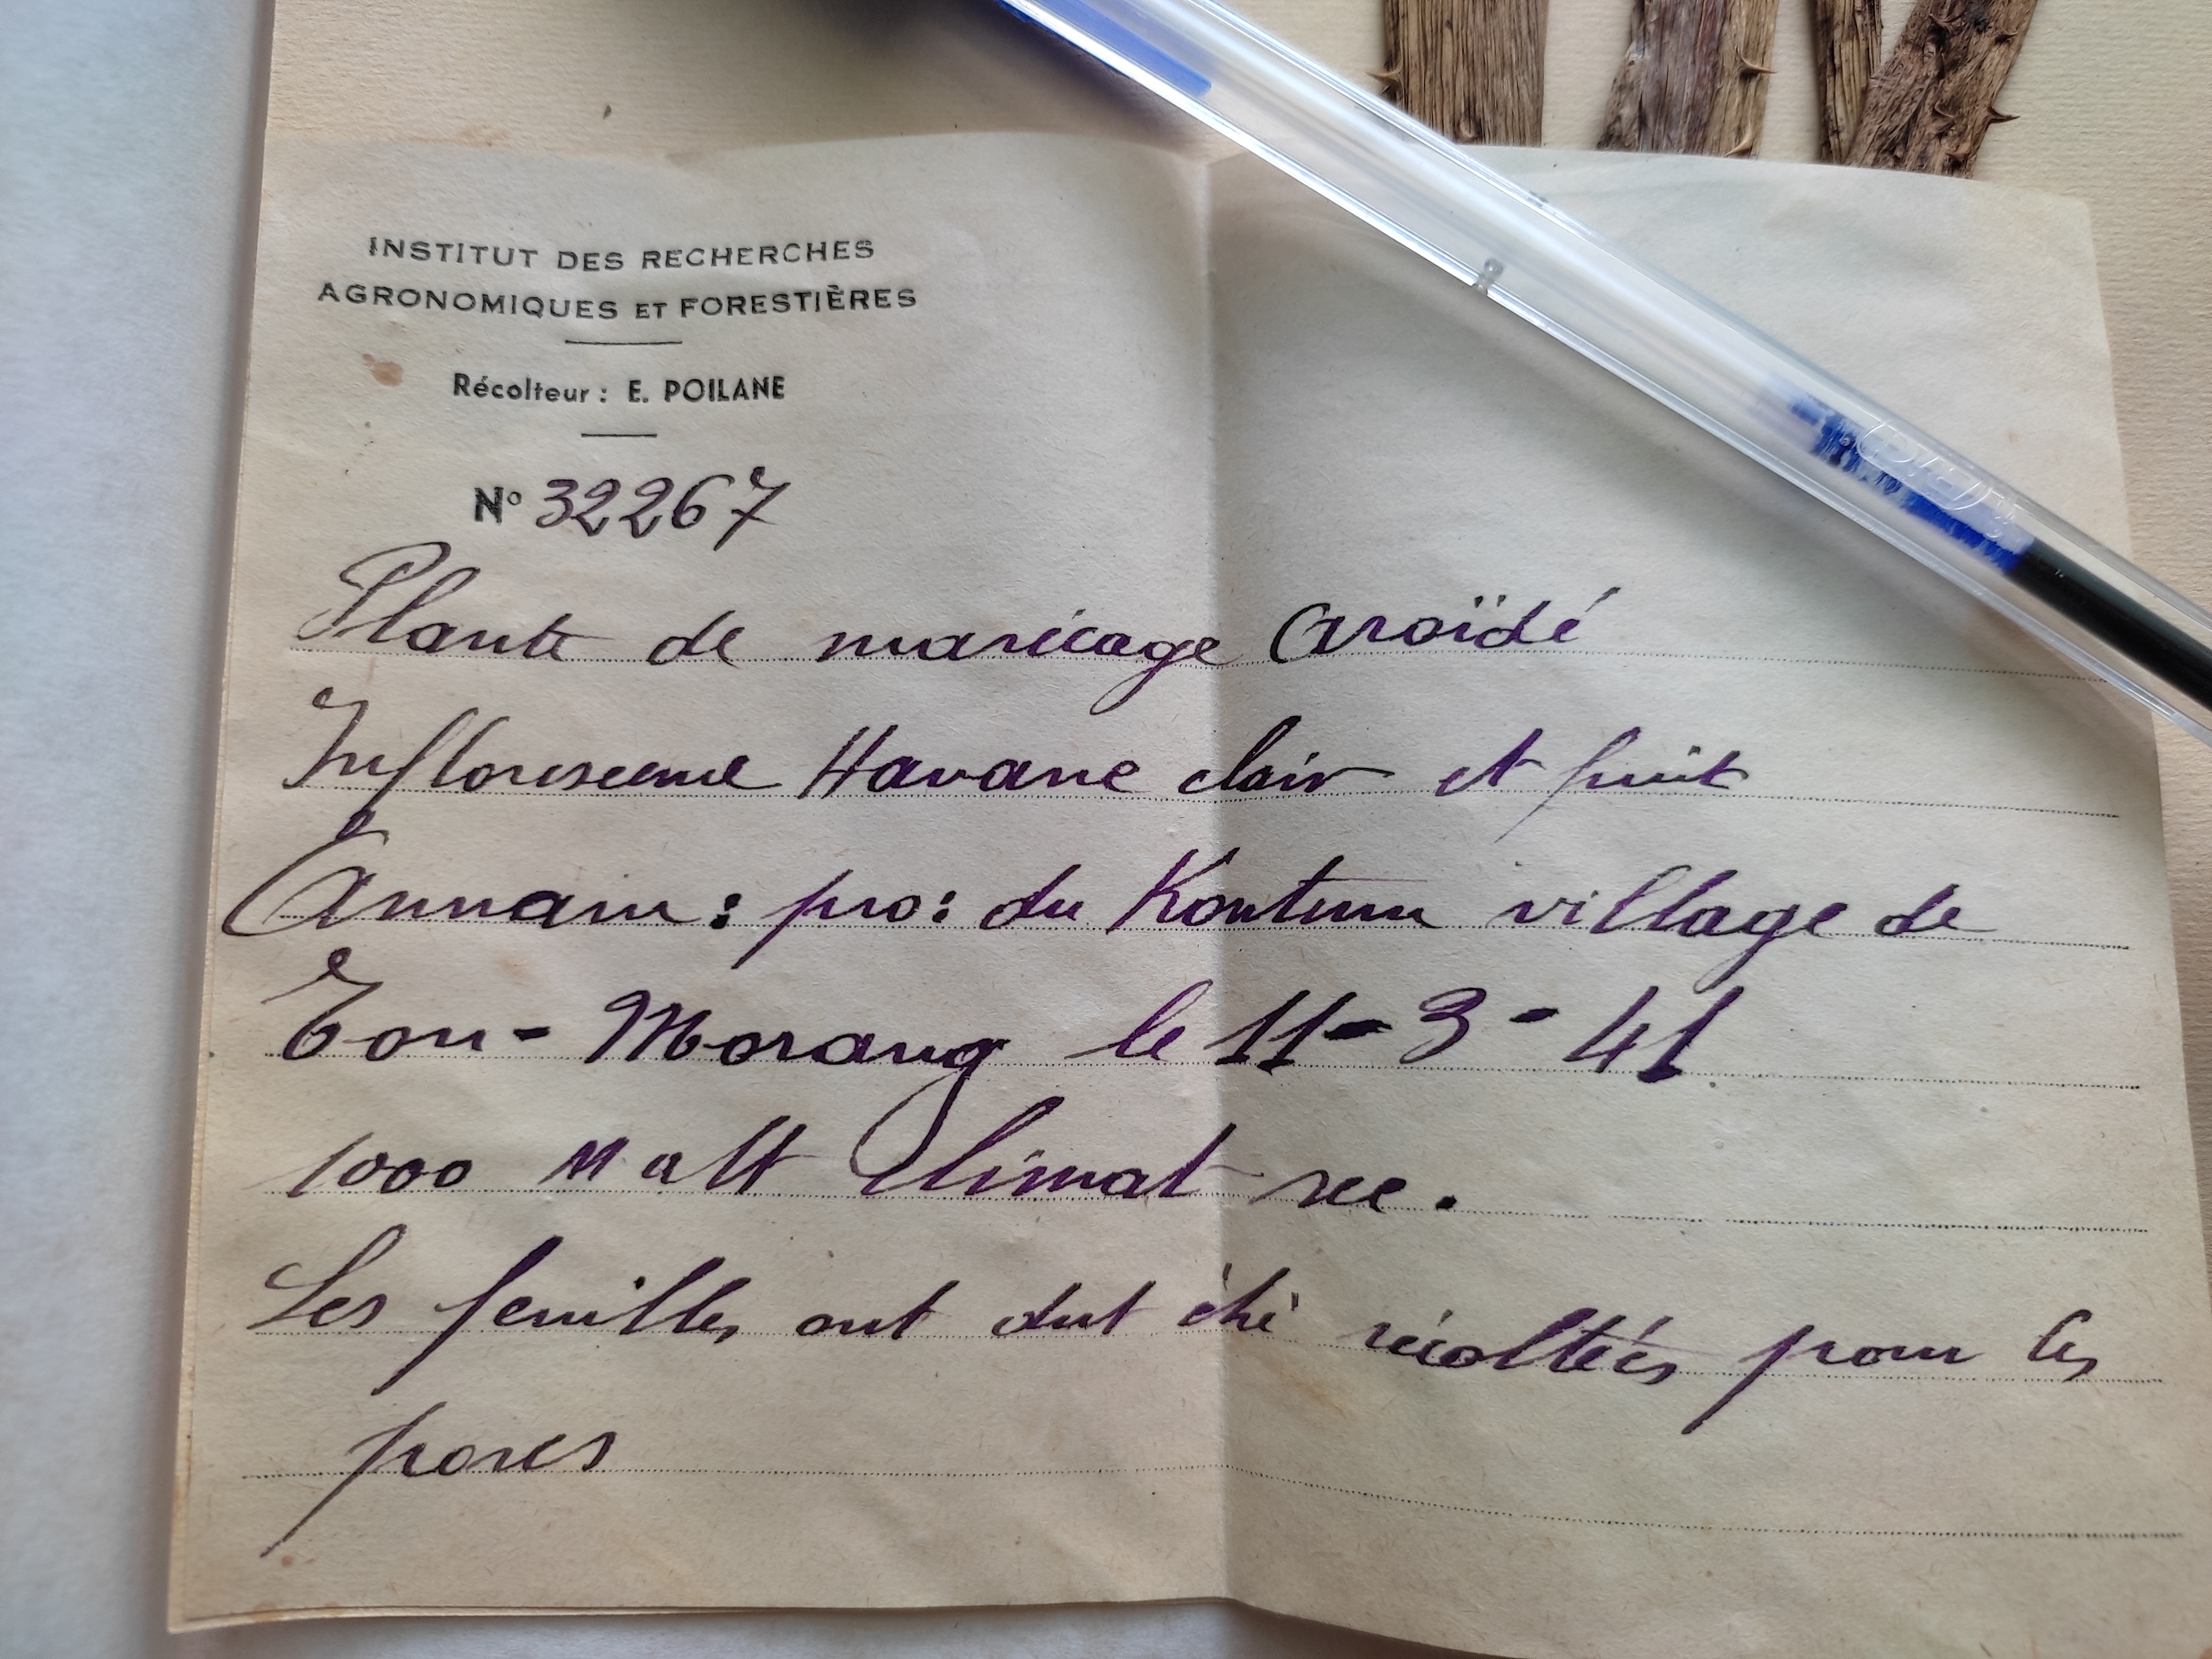 INSTITUT DES RECHERCHES
AGRONOMIQUES ET FORESTIÈRES
Récolteur : E. POILANE
N° 32267
Plante de marécage Aroïdé
Inflorescence Havane clair et fruit
Annam : pro : du Kontum village de
Ton - Morang le 11 - 3 - 41
1000 M alt Climat sec.
Les feuilles ont dut été récoltées pour les
porcs